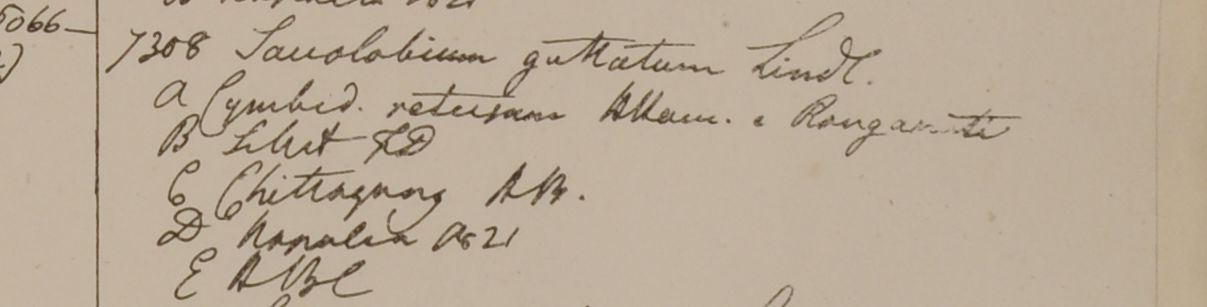 5066–
7308 Saccolobium guttatum Lindl.
a Cymbid. retusum HHam. e Rongamati
B Silhet FD
C Chittagong HB.
D Napalia 1821
E HBC